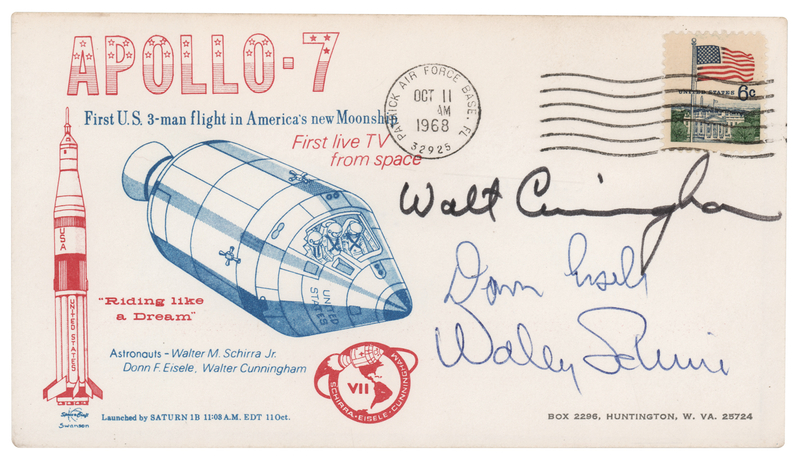 APOLLO-7
First U.S. 3-man flight in America's new Moonship
First live TV
from space
PATRICK AIR FORCE BASE, FL
OCT 11
AM
1968
32925
UNITED STATES 6c
Walt Cunningham
Donn Eisele
Wally Schirra
USA
UNITED STATES
UNITED
STATES
"Riding like
a Dream"
Astronauts - Walter M. Schirra Jr.
Donn F. Eisele, Walter Cunningham
VII
SCHIRRA-EISELE-CUNNINGHAM
Swanson
Launched by SATURN 1B 11:03 A.M. EDT 11 Oct.
BOX 2296, HUNTINGTON, W. VA. 25724